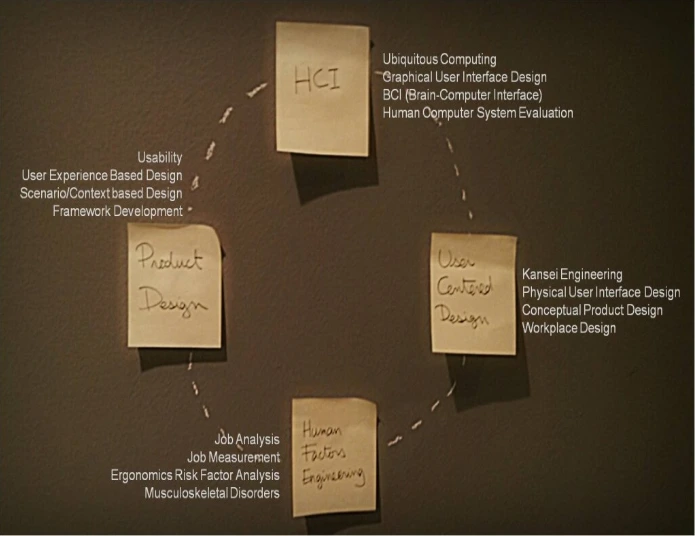 HCI
Ubiquitous Computing
Graphical User Interface Design
BCI (Brain-Computer Interface)
Human Computer System Evaluation
Usability
User Experience Based Design
Scenario/Context based Design
Framework Development
Product
Design
User
Centered
Design
Kansei Engineering
Physical User Interface Design
Conceptual Product Design
Workplace Design
Job Analysis
Job Measurement
Ergonomics Risk Factor Analysis
Musculoskeletal Disorders
Human
Factors
Engineering